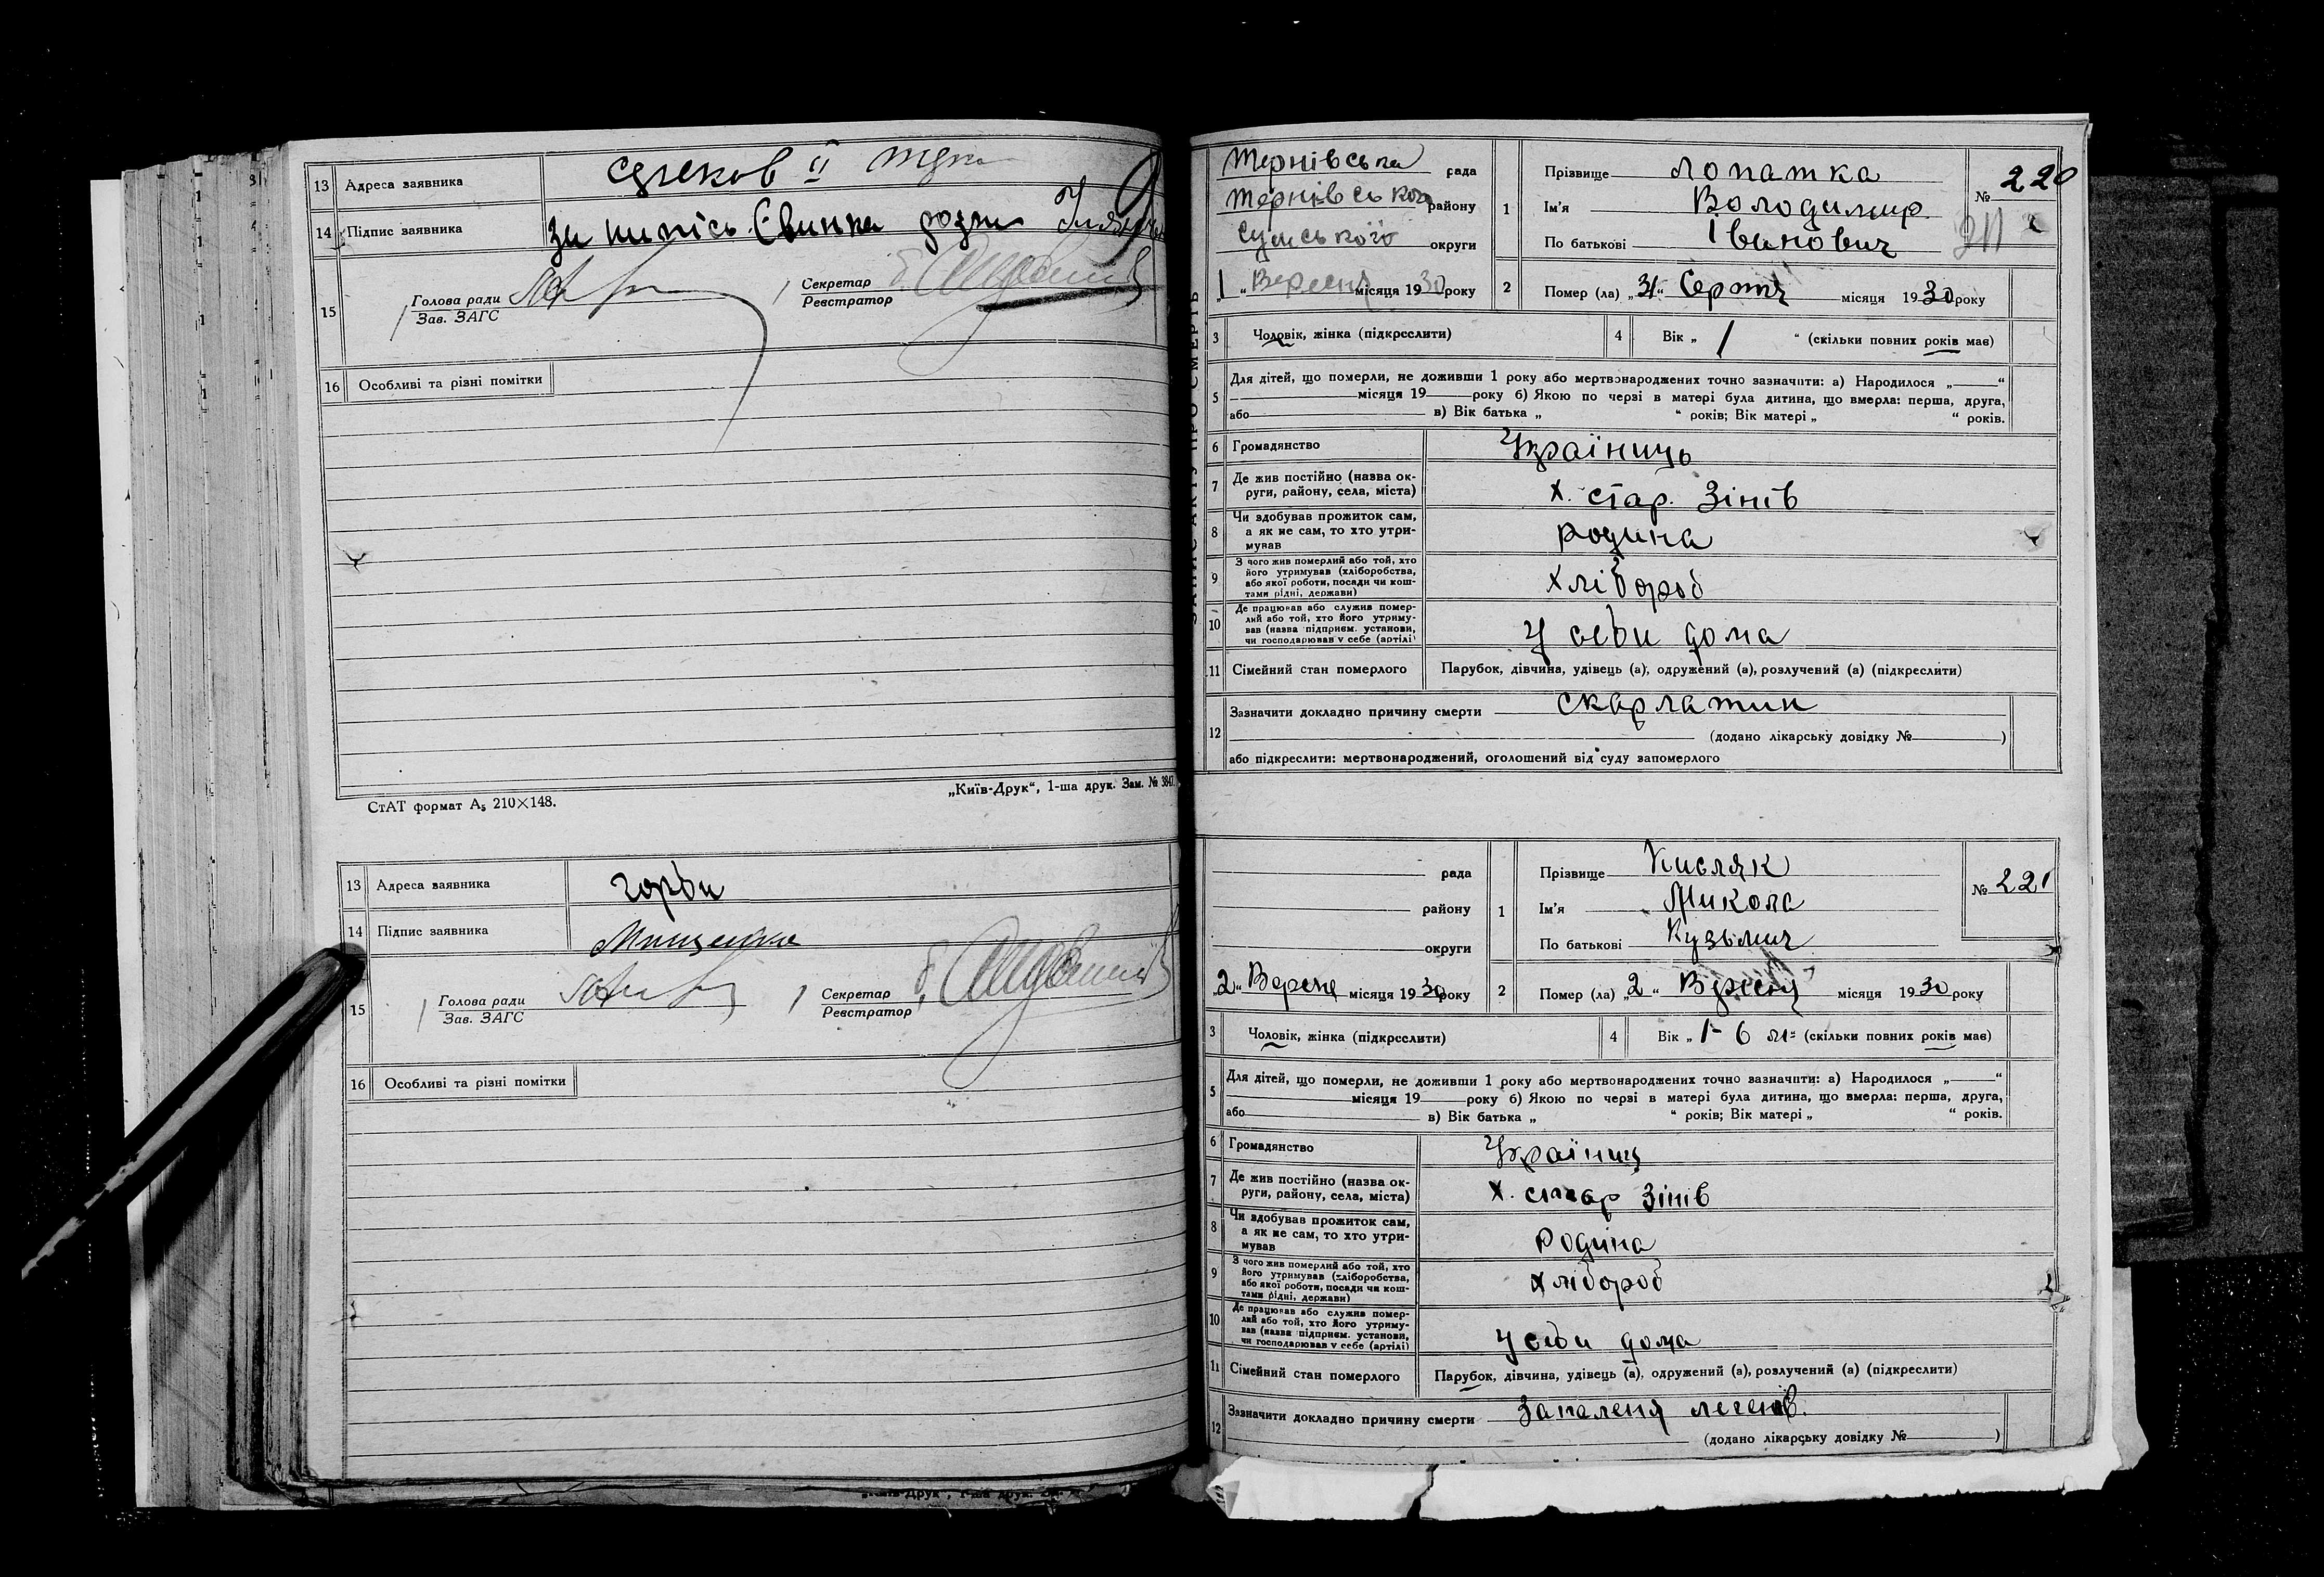 13 Адреса заявника
14 Підпис заявника за нипісь
15 Голова ради
Зав. ЗАГС
Секретар
Реєстратор
16 Особливі та різні помітки
СтАТ формат А₅ 210×148.
„Київ-Друк“, 1-ша друк. Зам. № 3847.
13 Адреса заявника
14 Підпис заявника
15 Голова ради
Зав. ЗАГС
Секретар
Реєстратор
16 Особливі та різні помітки
Тернівська рада
Тернівського району
Сумської округи
„1“ Вересня місяця 1930 року
№ 220
1 Прізвище Лопатка
Ім'я Володимир
По батькові Іванович
2 Помер (ла) „31“ Серпня місяця 1930 року
3 Чоловік, жінка (підкреслити)
4 Вік „ 1 “ (скільки повних років має)
5 Для дітей, що померли, не доживши 1 року або мертвонароджених точно зазначити: а) Народилося „ “
місяця 19 року б) Якою по черзі в матері була дитина, що вмерла: перша, друга,
або в) Вік батька „ “ років; Вік матері „ “ років.
6 Громадянство Україниць
7 Де жив постійно (назва округи, району, села, міста) х. стар. Зінів
8 Чи здобував прожиток сам,
а як не сам, то хто утримував родина
9 З чого жив померлий або той, хто
його утримував (хліборобства,
або якої роботи, посади чи коштами рідні, держави) хлібороб
10 Де працював або служив померлий або той, хто його утримував (назва підприєм. установи,
чи господарював у себе (артілі) у себи дома
11 Сімейний стан померлого Парубок, дівчина, удівець (а), одружений (а), розлучений (а) (підкреслити)
12 Зазначити докладно причину смерти скарлатин
(додано лікарську довідку № )
або підкреслити: мертвонароджений, оголошений від суду запомерлого
рада
району
округи
„2“ Вересня місяця 1930 року
№ 221
1 Прізвище Кисляк
Ім'я Микола
По батькові Кузьмич
2 Помер (ла) „2“ Вересня місяця 1930 року
3 Чоловік, жінка (підкреслити)
4 Вік „ 1- 6 м- (скільки повних років має)
5 Для дітей, що померли, не доживши 1 року або мертвонароджених точно зазначити: а) Народилося „ “
місяця 19 року б) Якою по черзі в матері була дитина, що вмерла: перша, друга,
або в) Вік батька „ “ років; Вік матері „ “ років.
6 Громадянство Україниц
7 Де жив постійно (назва округи, району, села, міста) х. стар Зінів
8 Чи здобував прожиток сам,
а як не сам, то хто утримував Родина
9 З чого жив померлий або той, хто
його утримував (хліборобства,
або якої роботи, посади чи коштами рідні, держави) хлібороб
10 Де працював або служив померлий або той, хто його утримував (назва підприєм. установи,
чи господарював у себе (артілі) у себи дома
11 Сімейний стан померлого Парубок, дівчина, удівець (а), одружений (а), розлучений (а) (підкреслити)
12 Зазначити докладно причину смерти Запаленя легенів.
(додано лікарську довідку № )